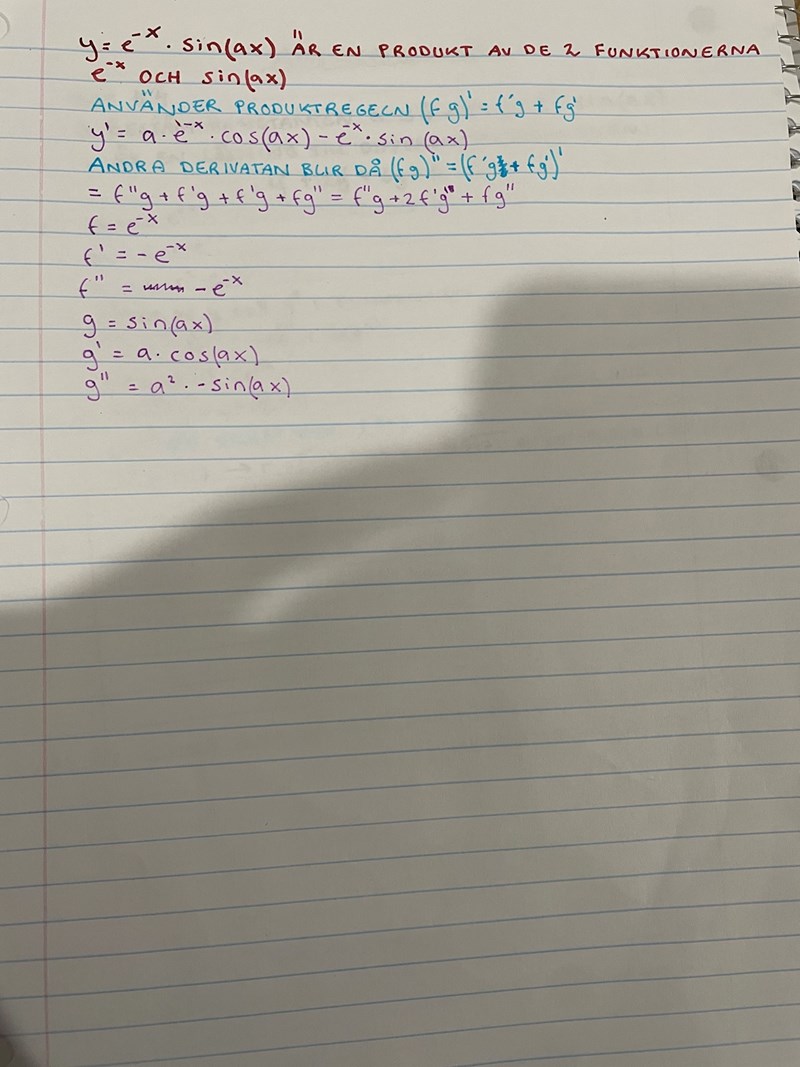 y = e^-x · sin(ax) ÄR EN PRODUKT AV DE 2 FUNKTIONERNA
e^-x OCH sin(ax)
ANVÄNDER PRODUKTREGELN (fg)' = f'g + fg'
y' = a · e^-x · cos(ax) - e^-x · sin(ax)
ANDRA DERIVATAN BLIR DÅ (fg)'' = (f'g + fg')'
= f''g + f'g + f'g + fg'' = f''g + 2f'g' + fg''
f = e^-x
f' = -e^-x
f'' = -e^-x
g = sin(ax)
g' = a · cos(ax)
g'' = a² · -sin(ax)